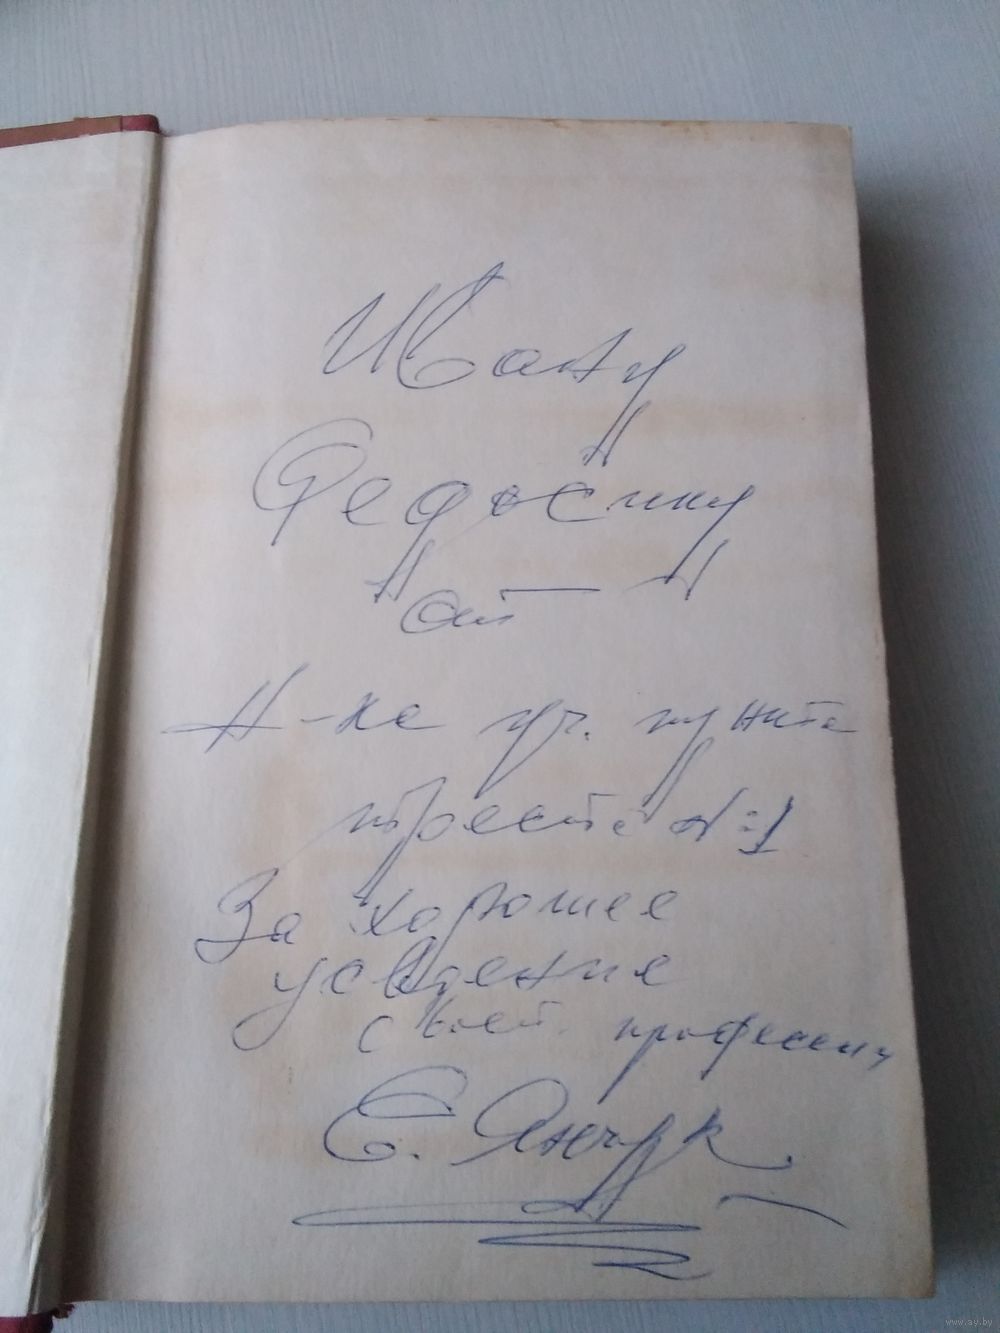 Ивану
Федосику
от
Н-ка уч. пункта
треста №1
За хорошее
усвоение
своей профессии
Е. Янчук
www.ay.by